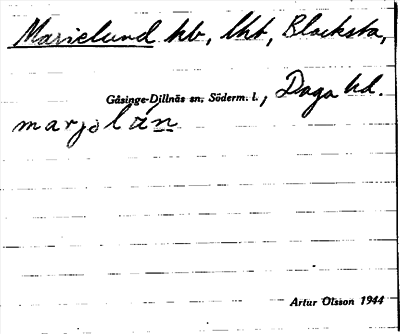 Marielund hb, lht, Blacksta,
Gåsinge-Dillnäs sn, Söderm. l., Daga hd.
marjəlán
Artur Olsson 1944